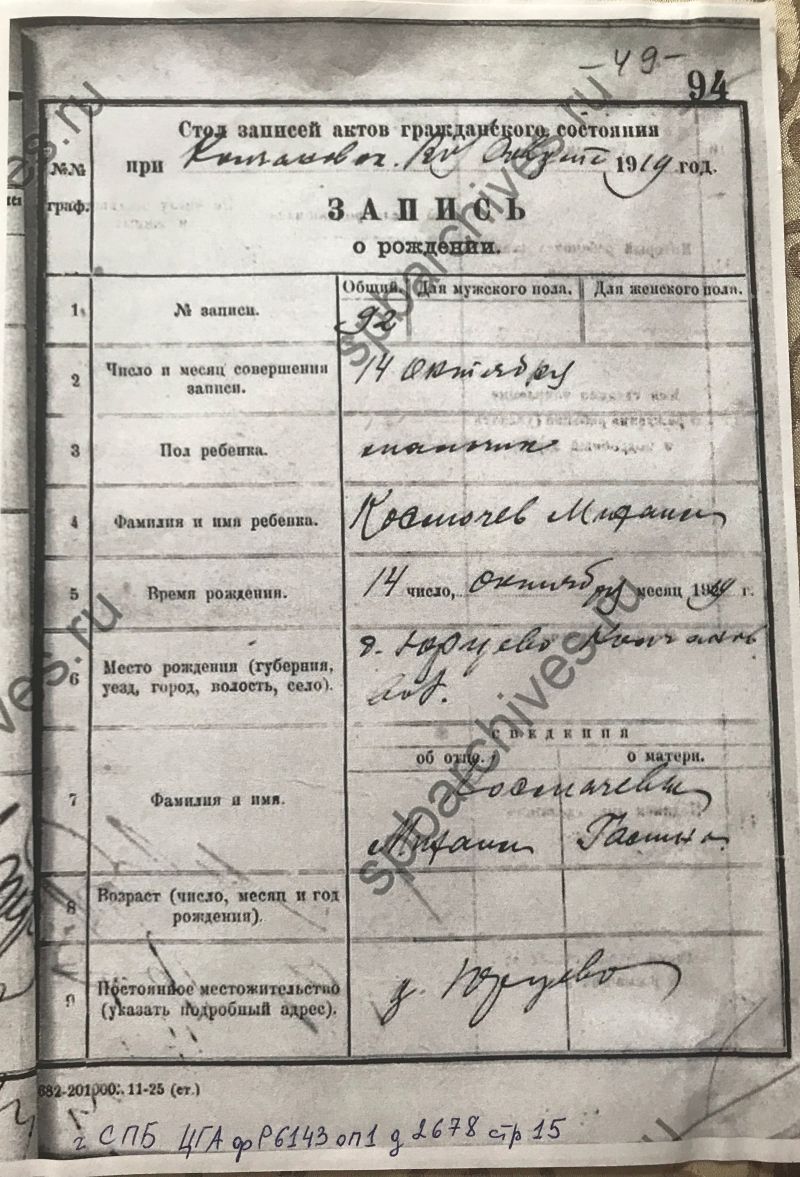 - 49 -
94
Стол записей актов гражданского состояния
№№ граф.
при 1919 год.
ЗАПИСЬ
о рождении.
Общий. Для мужского пола. Для женского пола.
1 № записи. 92
2 Число и месяц совершения записи. 14 октября
3 Пол ребенка. мальчик
4 Фамилия и имя ребенка. Космачев Михаил
5 Время рождения. 14 число, октября месяц 1919 г.
6 Место рождения (губерния, д. Юрцево
уезд, город, волость, село). вол.
сведения
об отце. о матери.
Космачевы
7 Фамилия и имя.
Михаил
8 Возраст (число, месяц и год
рождения).
9 Постоянное местожительство д. Юрцево
(указать подробный адрес).
682-201000. 11-25 (ст.)
г СПБ ЦГА ф Р6143 оп1 д 2678 стр 15
spbarchives.ru
spbarchives.ru